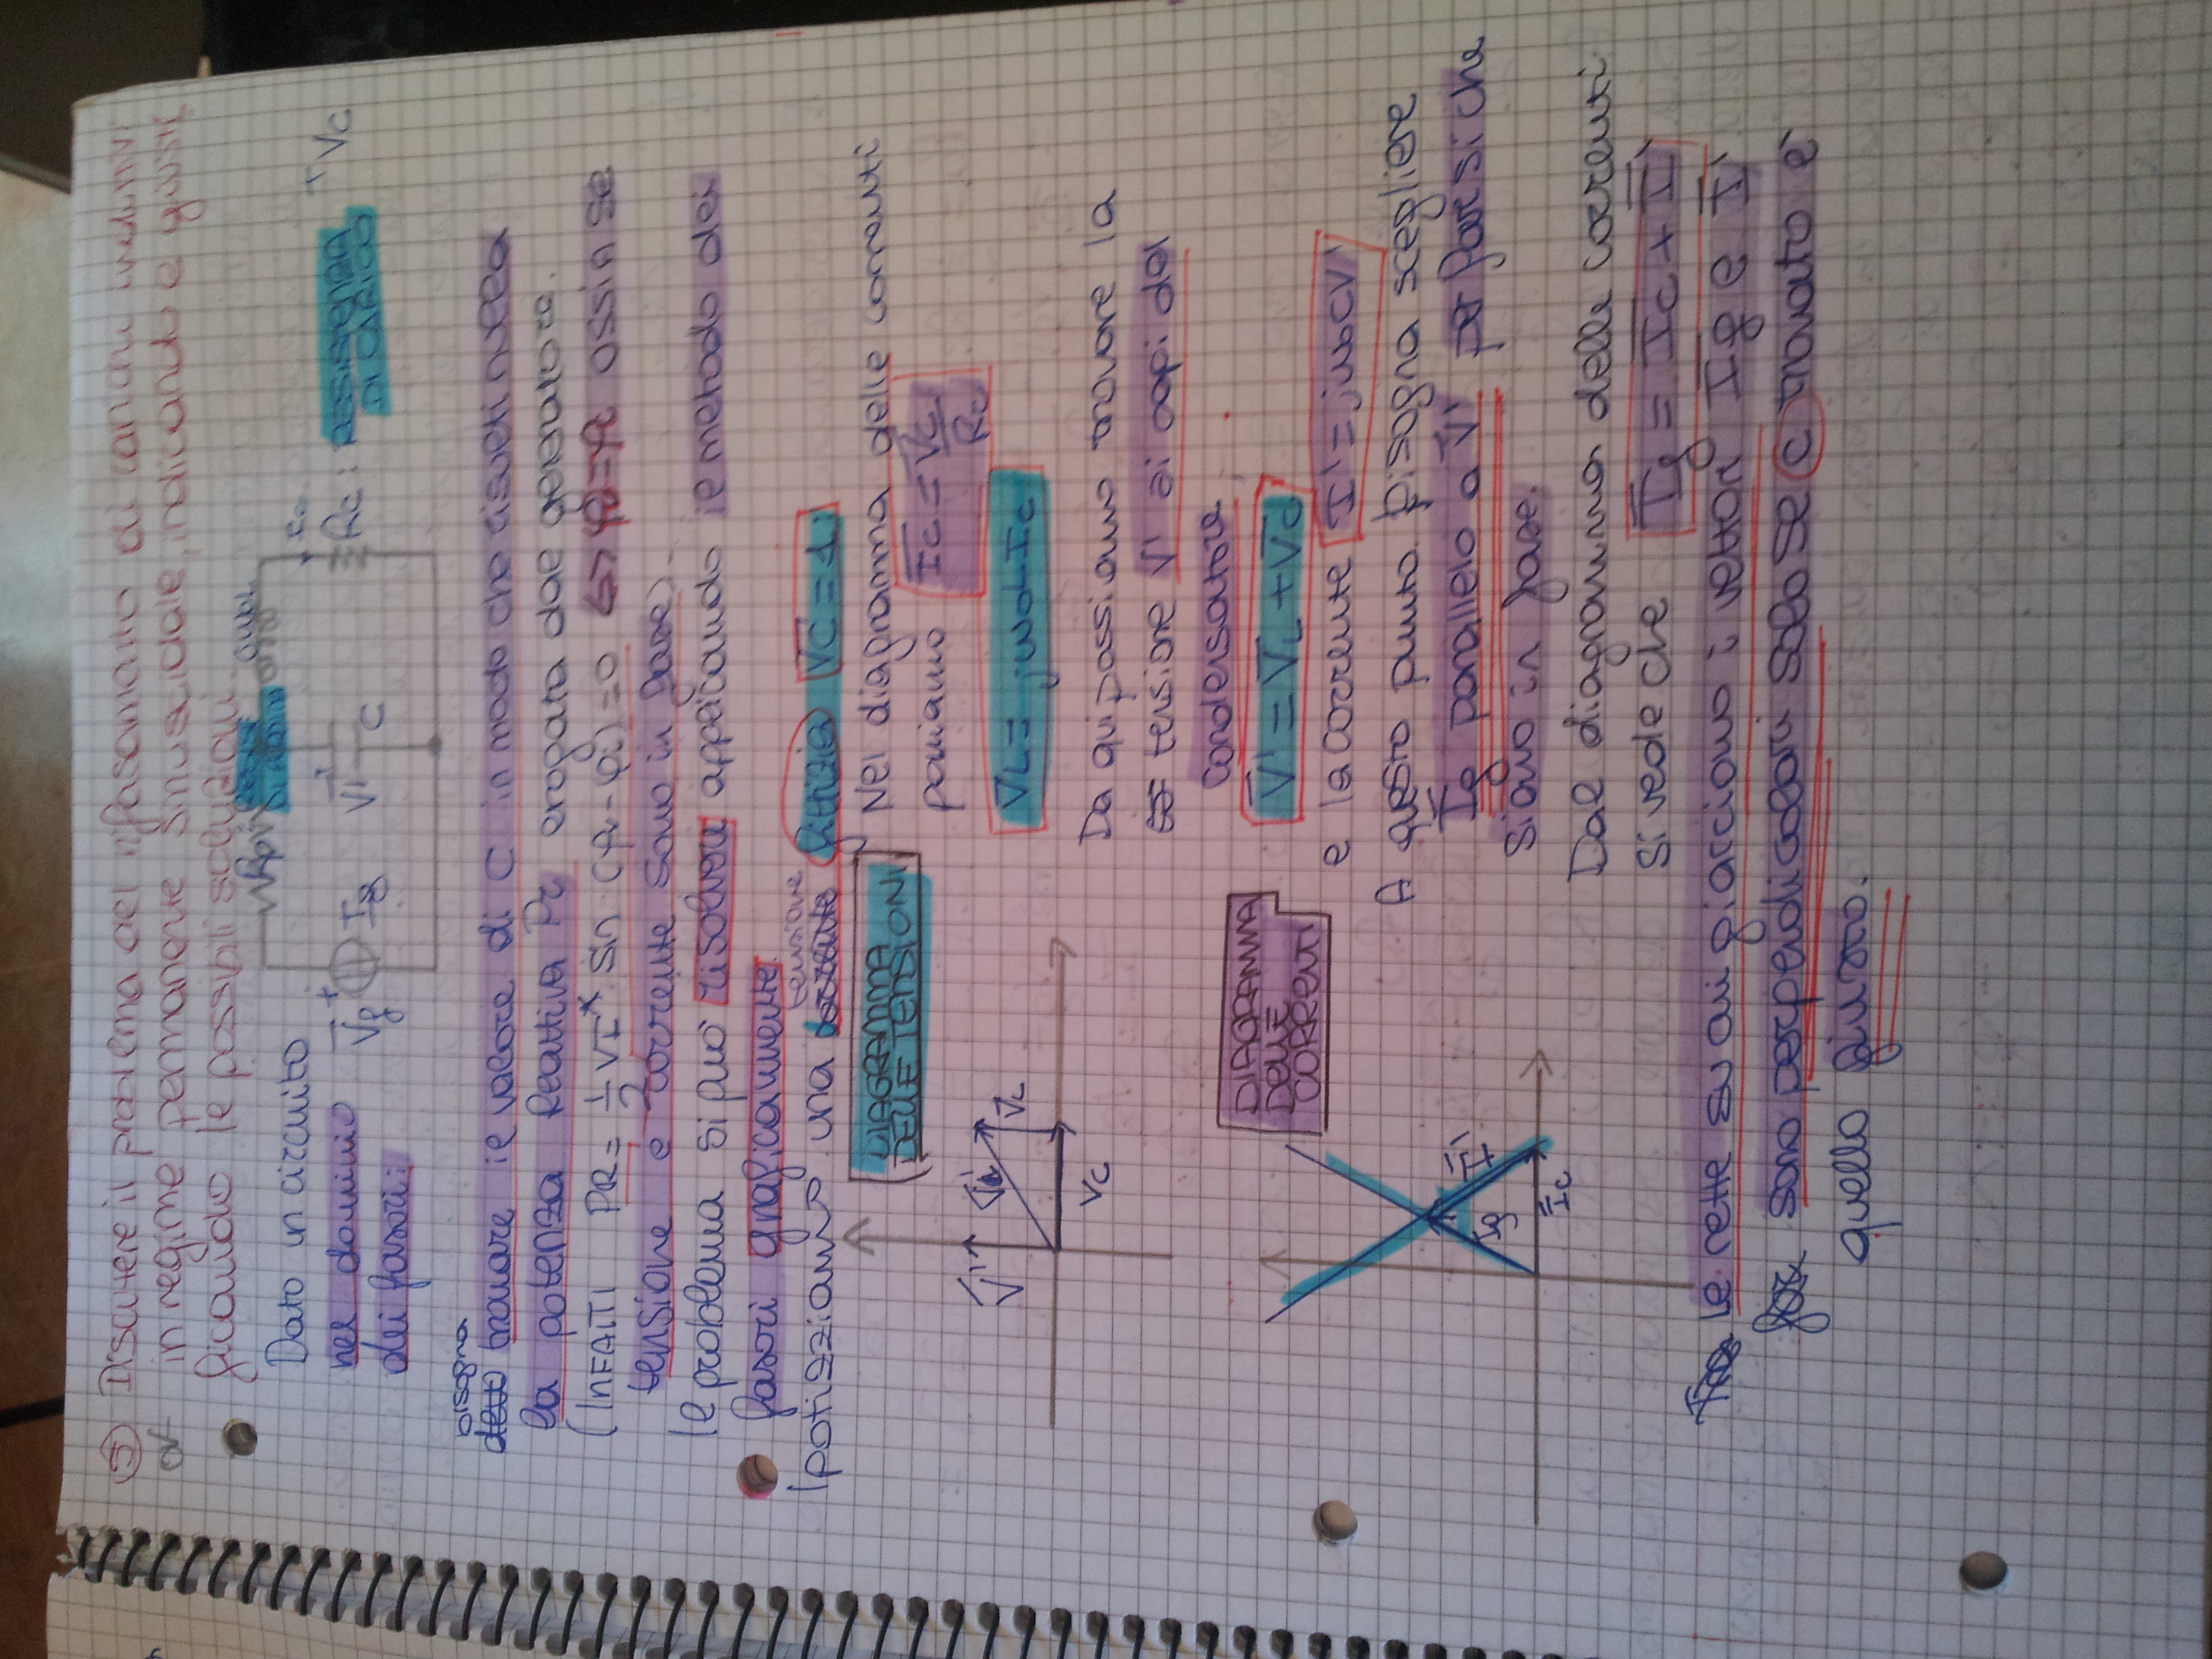 5) Discutere il problema del rifasamento di carichi induttivi
in regime permanente sinusoidale, indicando e giusti
ficando le possibili soluzioni.
Dato un circuito
nel dominio
dei fasori:
Rp
DI
jω0L
V̄g + Ig
V̄' C
Rc: RESISTENZA
DI CARICO
+ Vc
bisogna
devo trovare il valore di C in modo che risulti nulla
la potenza Reattiva Pr erogata dal generatore.
(INFATTI PR = 1/2 VI* sin (φv-φi) = 0 <=> φv=φi OSSIA SE
tensione e corrente sono in fase).
Il problema si può risolvere applicando il metodo dei
fasori graficamente.
tensione
Ipotizziamo una corrente fittizia V̄c = 1
DIAGRAMMA
DELLE TENSIONI
V̄' V̄' V̄L
Vc
Nel diagramma delle correnti
poniamo Īc = V̄c/Rc
V̄L = jω0LIc
Da qui possiamo trovare la
tensione V' ai capi del
condensatore
V̄' = V̄L + V̄c
e la corrente I' = jω0CV'
DIAGRAMMA
DELLE
CORRENTI
Īg Ī'
Īc
A questo punto bisogna scegliere
Īg parallelo a V̄' per fare si che
siano in fase.
Dal diagramma delle correnti
si vede che Īg = Īc + Ī'
Le rette su cui giacciono i vettori Īg e Ī'
sono perpendicolari solo se C trovato è
quello giusto.